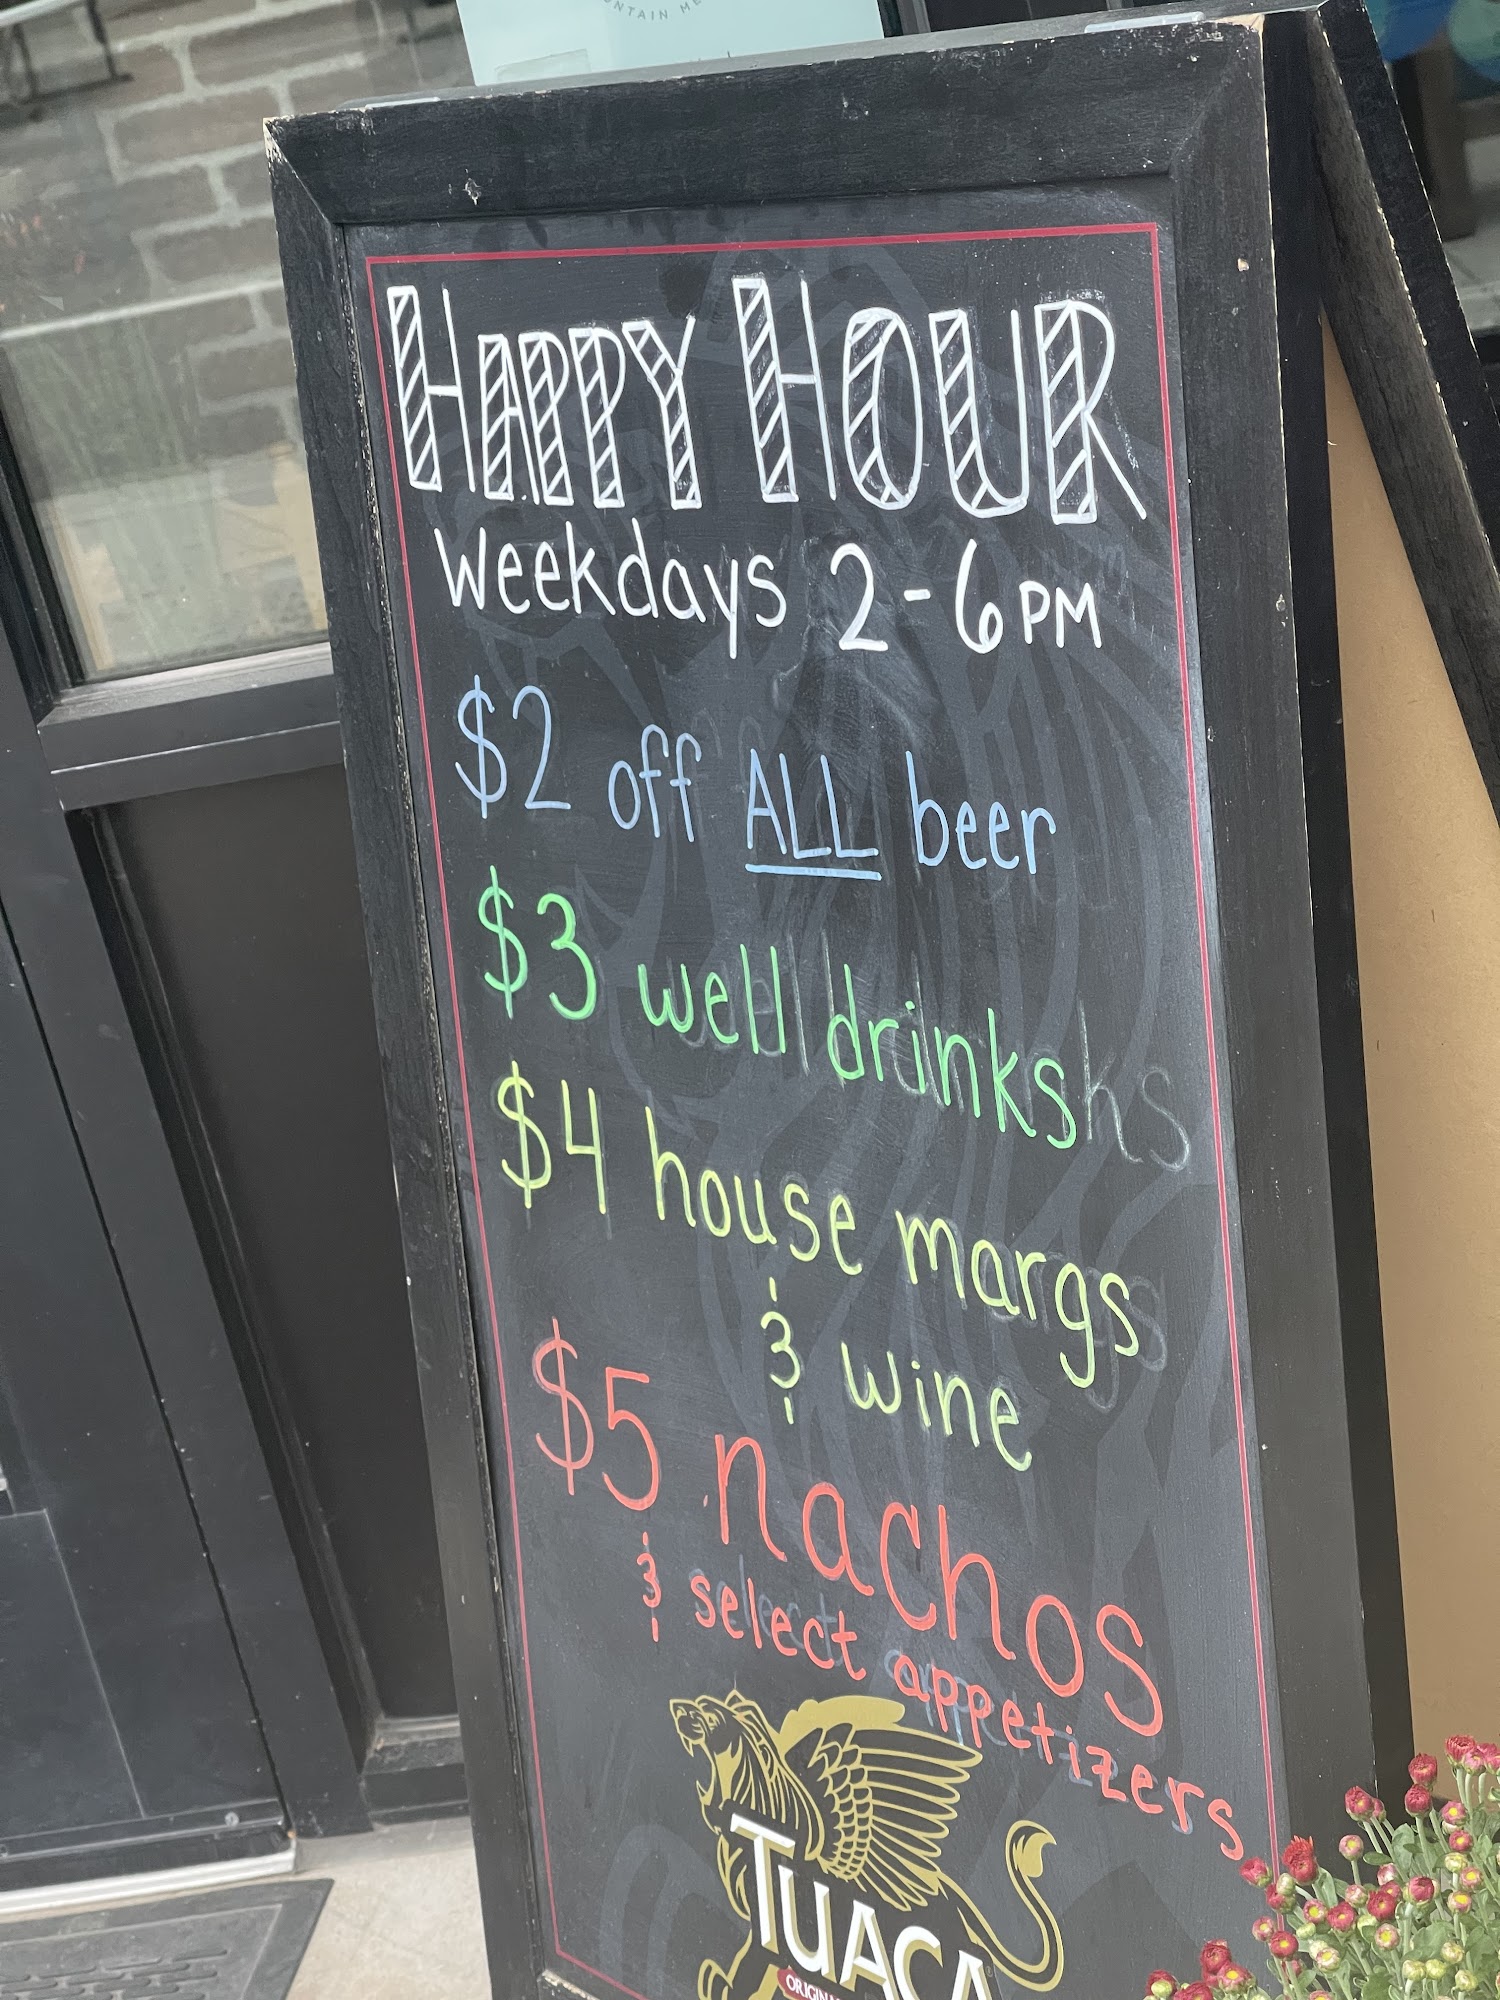 HAPPY HOUR
weekdays 2-6PM
$2 off ALL beer
$3 well drinks
$4 house margs
& wine
$5 nachos
& select appetizers
TUACA